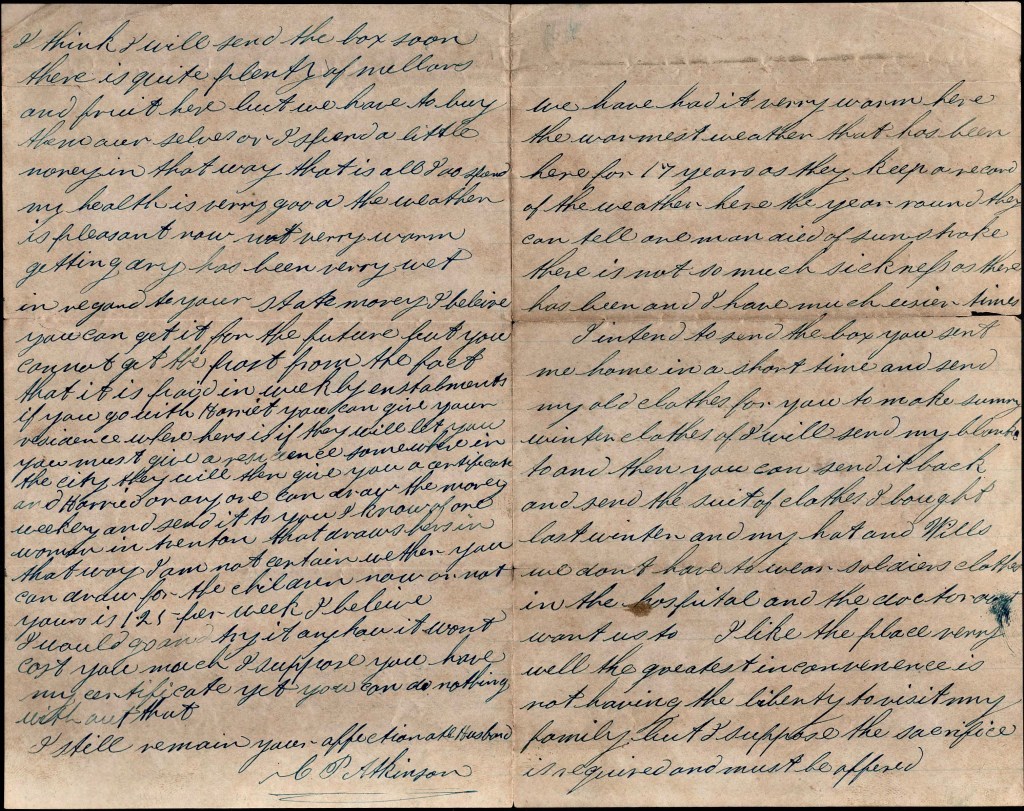 I think I will send the box soon
there is quite plenty of mellans
and fruit here but we have to buy
them our selves or I spend a little
money in that way that is all I do spend
my health is verry good the weather
is pleasant now not verry warm
getting dry has been verry wet
in regard to your state money I beleive
you can get it for the future but you
cannot get the past from the fact
that it is paid in weekly enstalments
if you go with Harriet you can give your
residence where hers is if they will let you
you must give a residence somewhere in
the city they will then give you a certificate
and Harried or any one can draw the money
weekey and send it to you I know of one
woman in trenton that draws hers in
that way I am not certain wether you
can draw for the children now or not
yours is 1.25 per week I beleive
I would go and try it anyhow it wont
cost you much I suppose you have
my certificate yet you can do nothing
with out that
I still remain your affectionate Husband
C P Atkinson
we have had it verry warm here
the warmest weather that has been
here for 17 years as they keep a record
of the weather here the year round they
can tell one man died of sun stroke
there is not so much sickness as there
has been and I have much easier times
I intend to send the box you sent
me home in a short time and send
my old clothes for you to make sumry
winter clothes of I will send my blanket
to and then you can send it back
and send the suit of clothes I bought
last winter and my hat and Wills
we dont have to wear soldiers clothes
in the hospital and the doctor dont
want us to I like the place verry
well the greatest inconvenience is
not having the liberty to visit my
family but I suppose the sacrifice
is required and must be offered